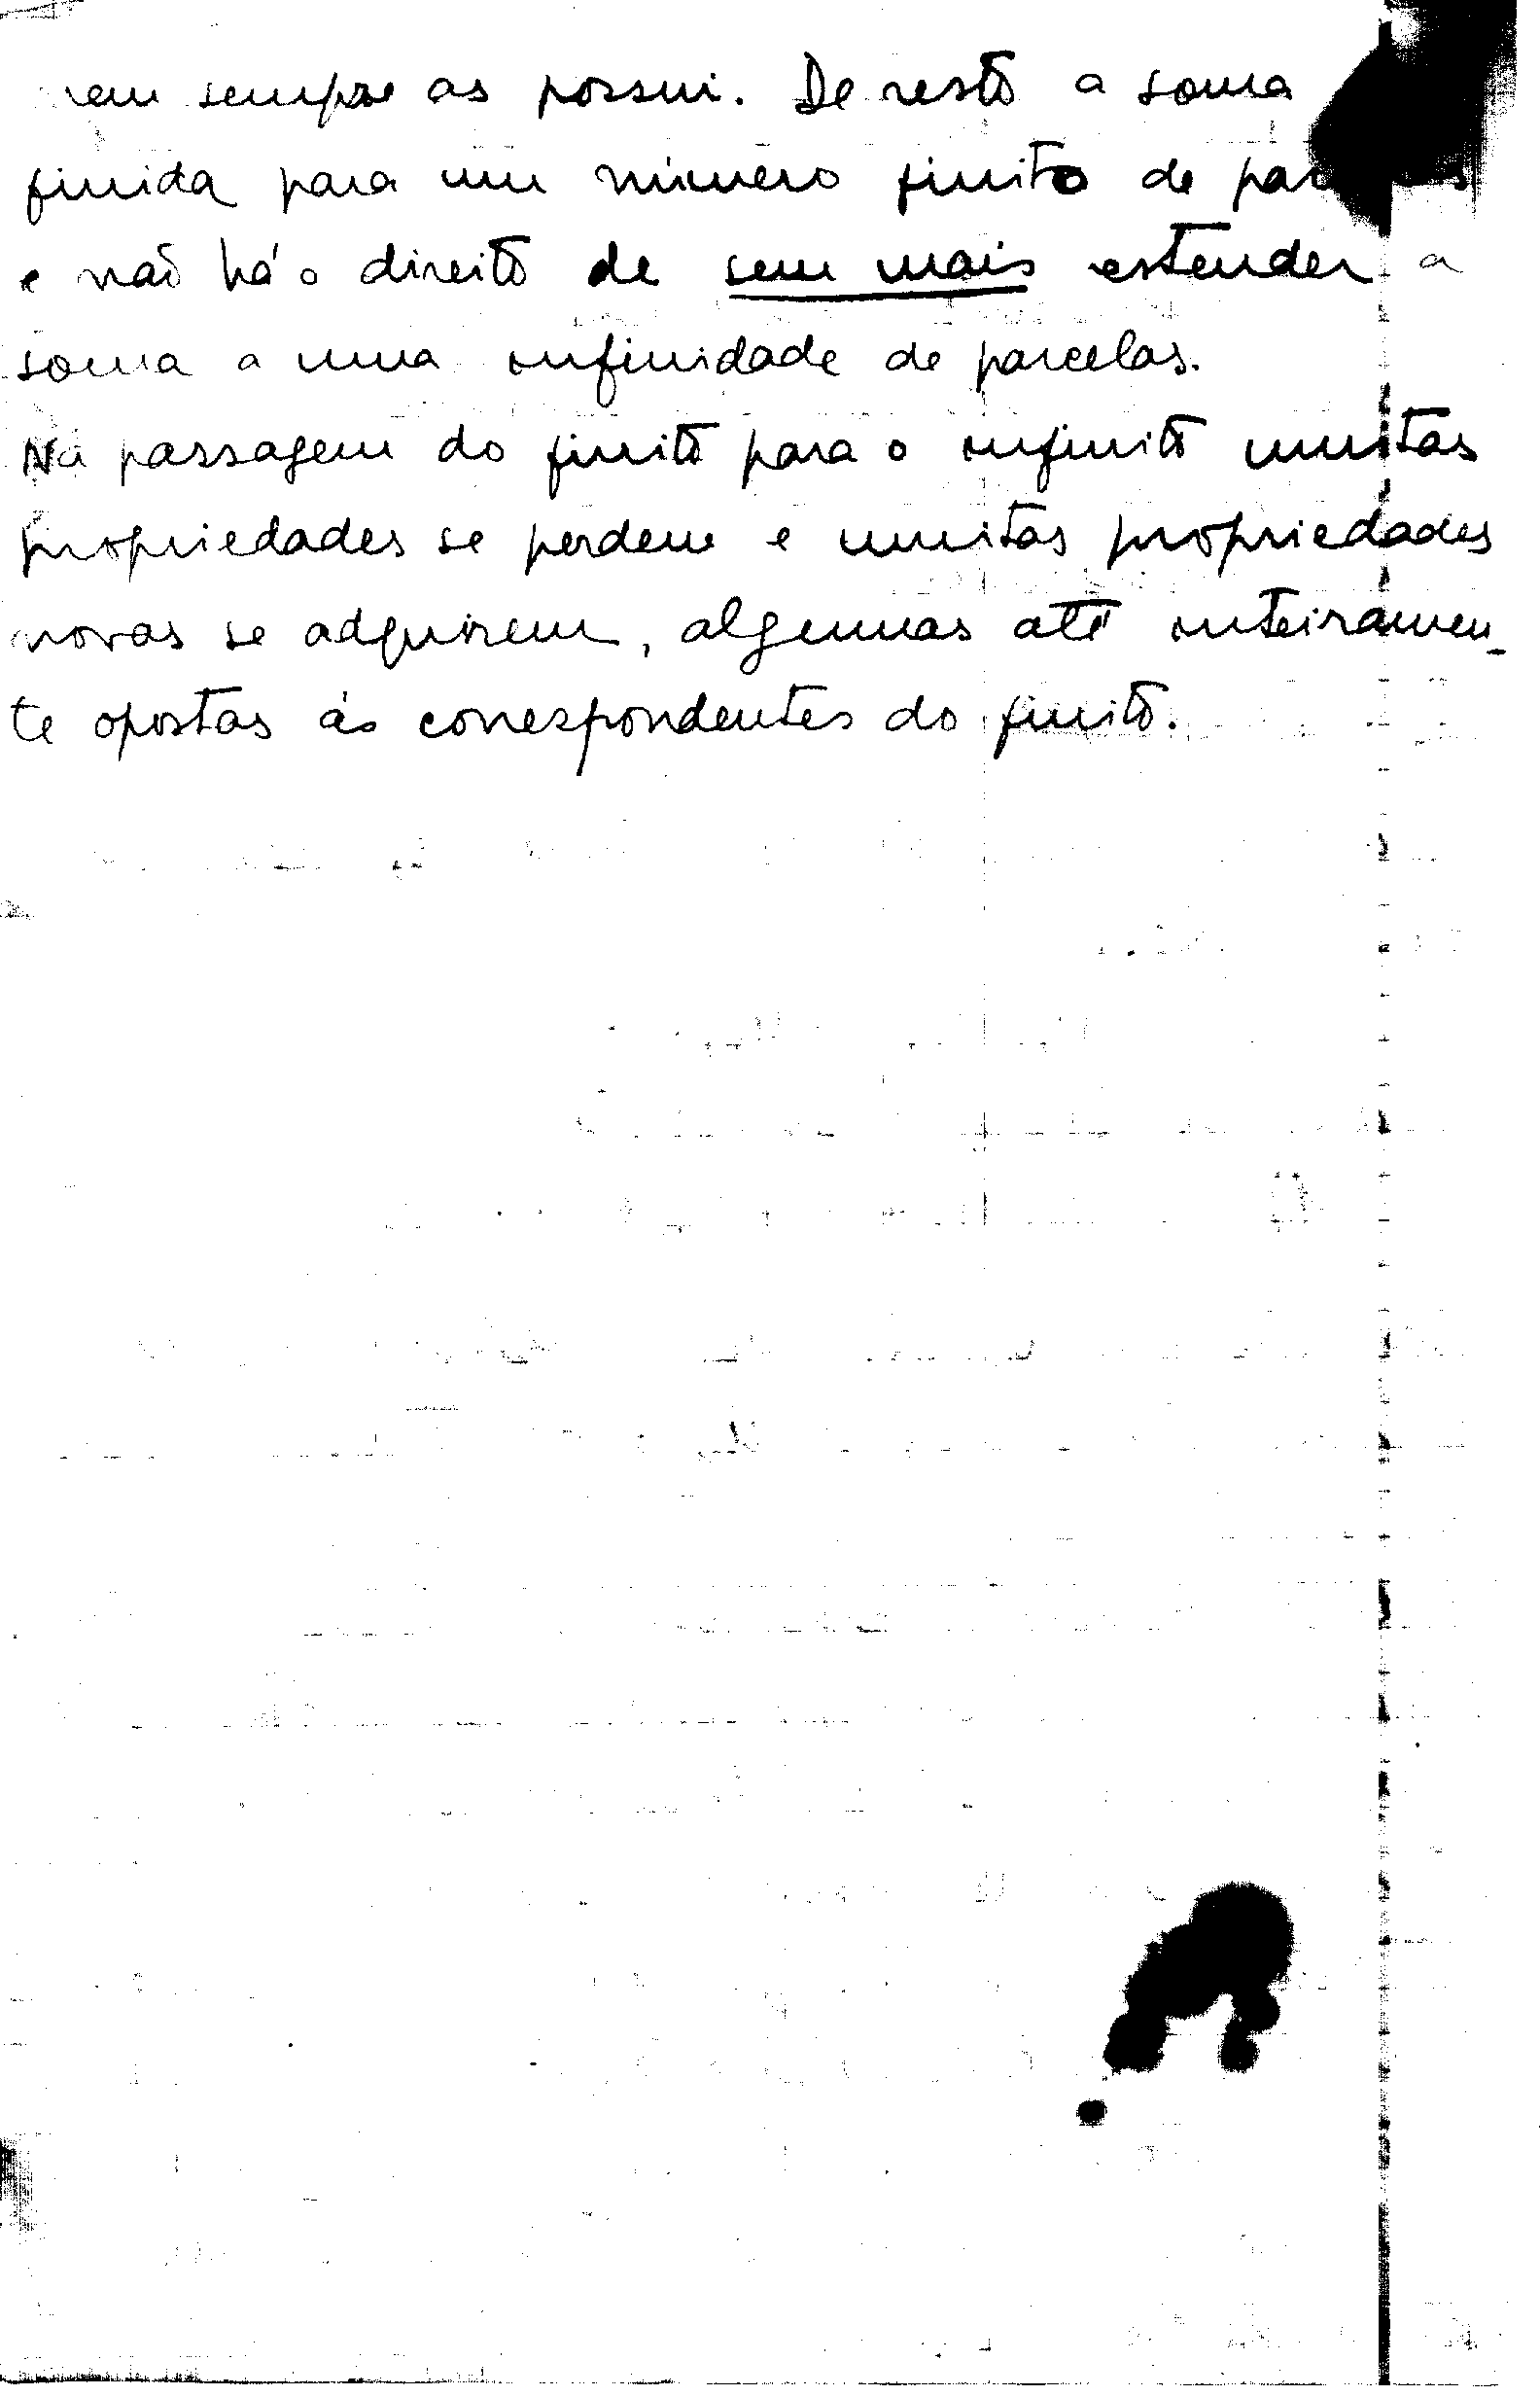 nem sempre as possui. De resto a soma
finida para um número finito de
e não há o direito de sem mais estender a
soma a uma infinidade de parcelas.
Na passagem do finito para o infinito muitas
propriedades se perdem e muitas propriedades
novas se adquirem, algumas até inteiramen-
te opostas às correspondentes do finito.